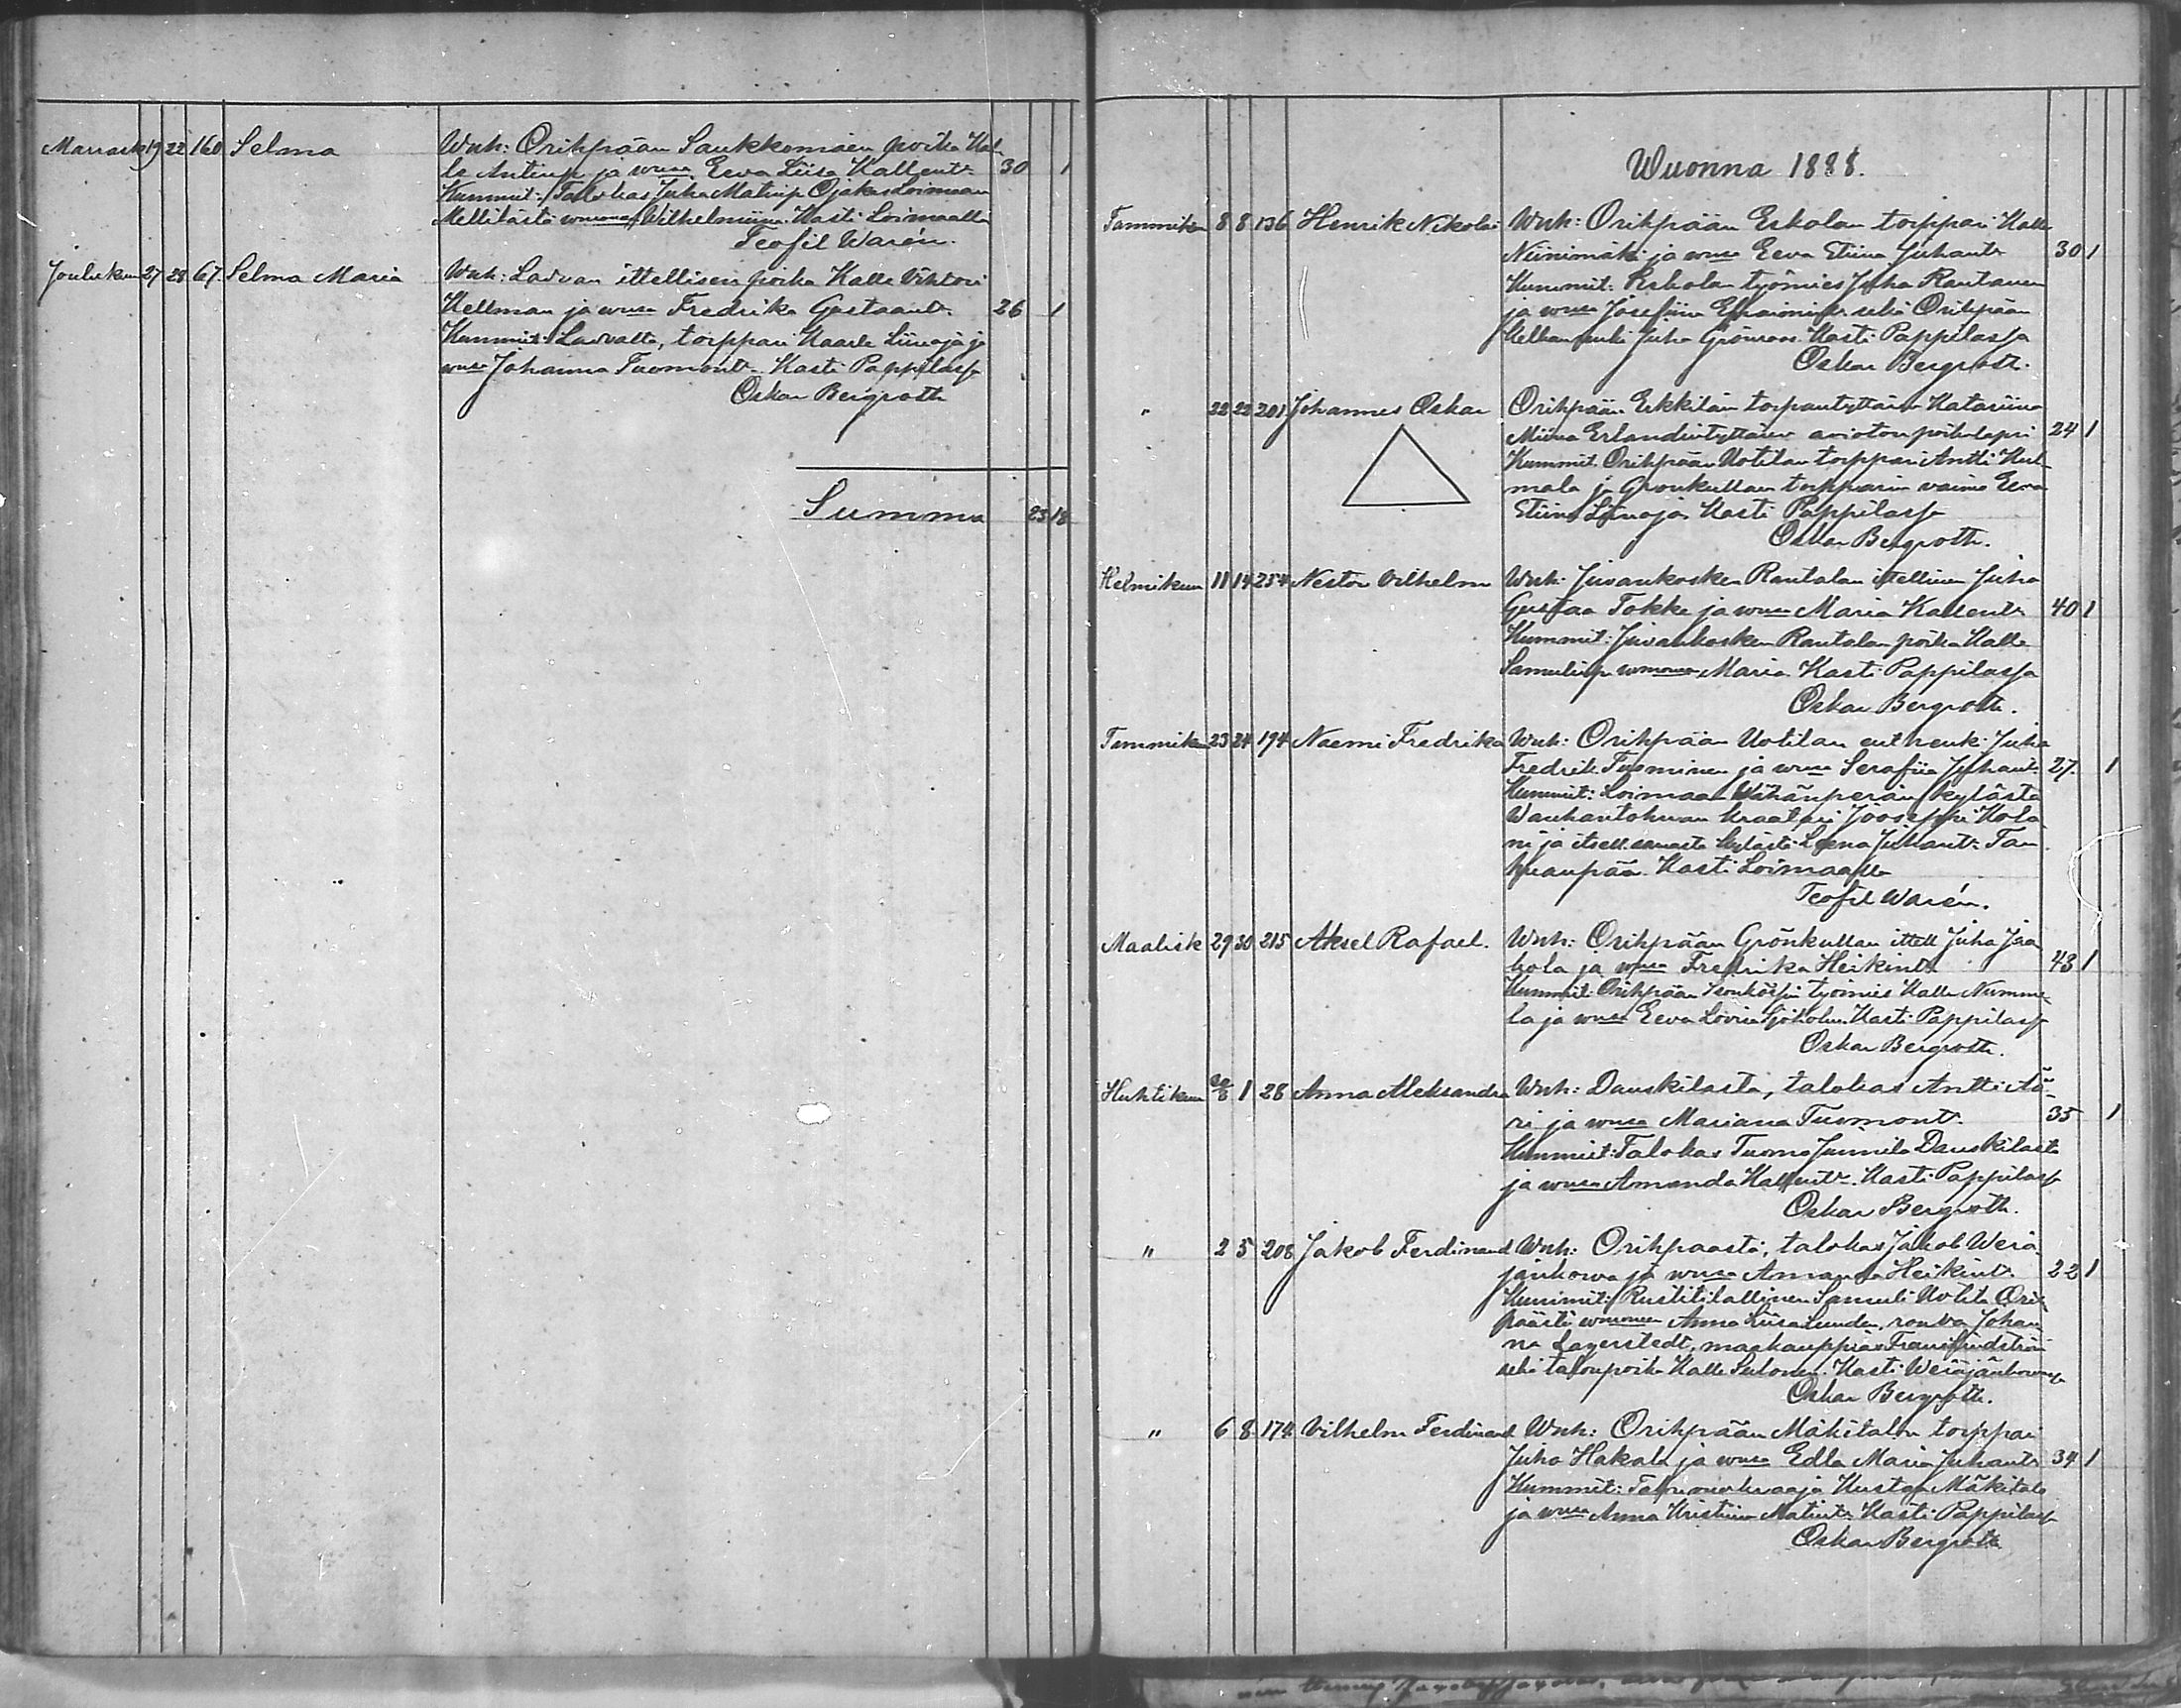 Marrask 19 22 160 Selma Wnh: Oripään Saukkomäen poika Kal-
le Antinp. ja wmsa Eeva Liisa Kallent: 30 1
Kummit: Talokas Juha Matinp. Ojakas Loimaan
Mellilästä wmonen Wilhelmiina. Kasti Loimaalla
Teofil Warén.
Joulukuu 27 28 67. Selma Maria Wnh: Latvan ittellisen poika Kalle Vihtori
Hellman ja wmsa Fredrika Gustaant: 26 1
Kummit: Latvalta, torppari Kaarle Liinoja ja
wmsa Johanna Tuomont. Kasti Pappilassa
Oskar Bergroth
Summa 23 18
Wuonna 1888.
Tammikuu 8 8 136 Henrik Nikolai Wnh: Orihpään Eskolan torppari Kalle
Niinimäki ja wmsa Eeva Stiina Juhant: 30 1
Kummit: Eskolan työmies Juha Rautanen
ja wmsa Josefiina sekä Orihpään
Juha Grönroos. Kasti Pappilassa
Oskar Bergroth.
" 22 22 201 Johannes Oskar Orihpään Erkkilän torpantyttären Katariina
Miina Erlandintyttären avioton poikalapsi 24 1
Kummit. Orihpään Uotilan torppari Antti Hul-
mala ja Grönkullan torpparin vaimo Eeva
Stiina Liinoja. Kasti Pappilassa
Oskar Bergroth.
Helmikuu 11 14 254 Nestor Vilhelm Wnh: Juvankosken Rantalan ittellinen Juho
Gustaa Tokke ja wmsa Maria Kallent: 40 1
Kummit: Juvankosken Rantalan poika Kalle
Samulinp. wmonen Maria. Kasti Pappilassa
Oskar Bergroth.
Tammikuu 23 24 194 Naemi Fredrika Wnh: Orihpään Uotilan ent renk: Juha
Fredrik Tuominen ja wmsa Serafiia Juhant: 27. 1
Kummit: Loimaan Wähänperän kylästä
Wanhantalon kraatari Jooseppi Kola
ni ja itsell. samasta kylästä Leena Juhant: Tan
huanpää. Kasti Loimaalla
Teofil Warén.
Maalisk 29 30 215 Aksel Rafael. Wnh: Orihpään Grönkullan ittell Juha Jaa
kola ja wmsa Fredrika Heikint: 43 1
Kummit: Orihpään työmies Kalle Numme-
la ja wmsa Eeva Loviisa Sjöholm. Kasti Pappilassa
Oskar Bergroth.
Huhtikuu 1 28 Anna Aleksandra Wnh: Danskilasta, talokas Antti Aä-
ri ja wmsa Mariana Tuomont: 35 1
Kummit: Talokas Tuomo Junnila Danskilasta
ja wmsa Amanda Kallent: Kasti Pappilassa
Oskar Bergroth.
" 2 5 208 Jakob Ferdinand Wnh: Orihpäästä, talokas Jakob Werä-
jänkorva ja wmsa Amanda Heikint. 22 1
Kummit: Rustitilallinen Samuli Uotila Orih
päästä wmonen Anna Liisa Lunden, rouva Johan
na Lagerstedt, maakauppias Frans Lindström
sekä talonpoika Kalle Sulonen. Kasti Weräjänkorvassa
Oskar Bergroth.
" 6 8 174 Vilhelm Ferdinand Wnh: Orihpään Mäkitalon torppari
Juho Hakala ja wmsa Edla Maria Juhant: 34 1
Kummit: Kustaa Mäkitalo
ja wmsa Anna Kristiina Matint: Kasti Pappilassa
Oskar Bergroth